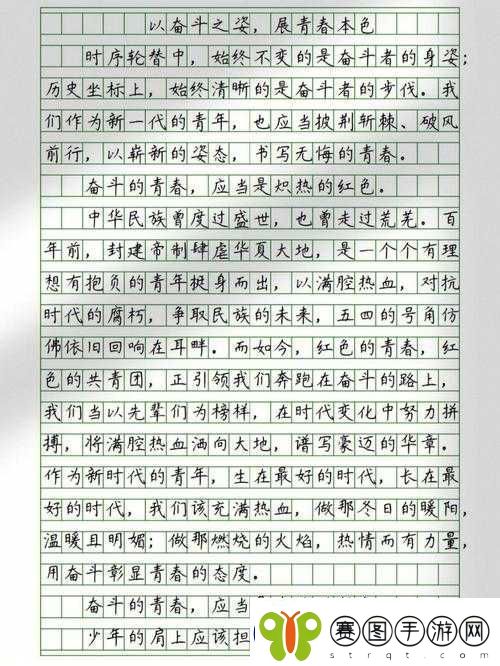 以奋斗之姿，展青春本色
时序轮替中，始终不变的是奋斗者的身姿；
历史坐标上，始终清晰的是奋斗者的步伐。我
们作为新一代的青年，也应当披荆斩棘、破风
前行，以崭新的姿态，书写无悔的青春。
奋斗的青春，应当是炽热的红色。
中华民族曾度过盛世，也曾走过荒芜。百
年前，封建帝制肆虐华夏大地，是一个个有理
想有抱负的青年挺身而出，以满腔热血，对抗
时代的腐朽，争取民族的未来，五四的号角仿
佛依旧回响在耳畔。而如今，红色的青春，红
色的共青团，正引领我们奔跑在奋斗的路上，
我们当以先辈们为榜样，在时代变化中努力拼
搏，将满腔热血洒向大地，谱写豪迈的华章。
作为新时代的青年，生在最好的时代，长在最
好的时代，我们该充满热血，做那冬日的暖阳，
温暖且明媚；做那燃烧的火焰，热情而有力量，
用奋斗彰显青春的态度。
奋斗的青春，应当
少年的肩上应该担
赛图手游网
strqt.com